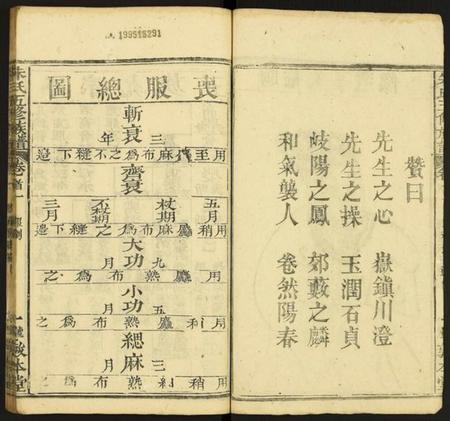 贊曰
先生之心 嶽鎮川澄
先生之操 玉潤石貞
岐陽之鳳 郊藪之麟
和氣襲人 卷然陽春
199515291
喪服總圖
斬衰 三年
用至麤麻布為之不縫下邊
齊衰
五月 杖期 不杖期 三月
用稍麤麻布為之縫下邊
大功 九月
用麤熟布為之
小功 五月
用稍麤熟布為之
緦麻 三月
用稍細熟布為之
朱氏五修族譜
卷首一
敦本堂